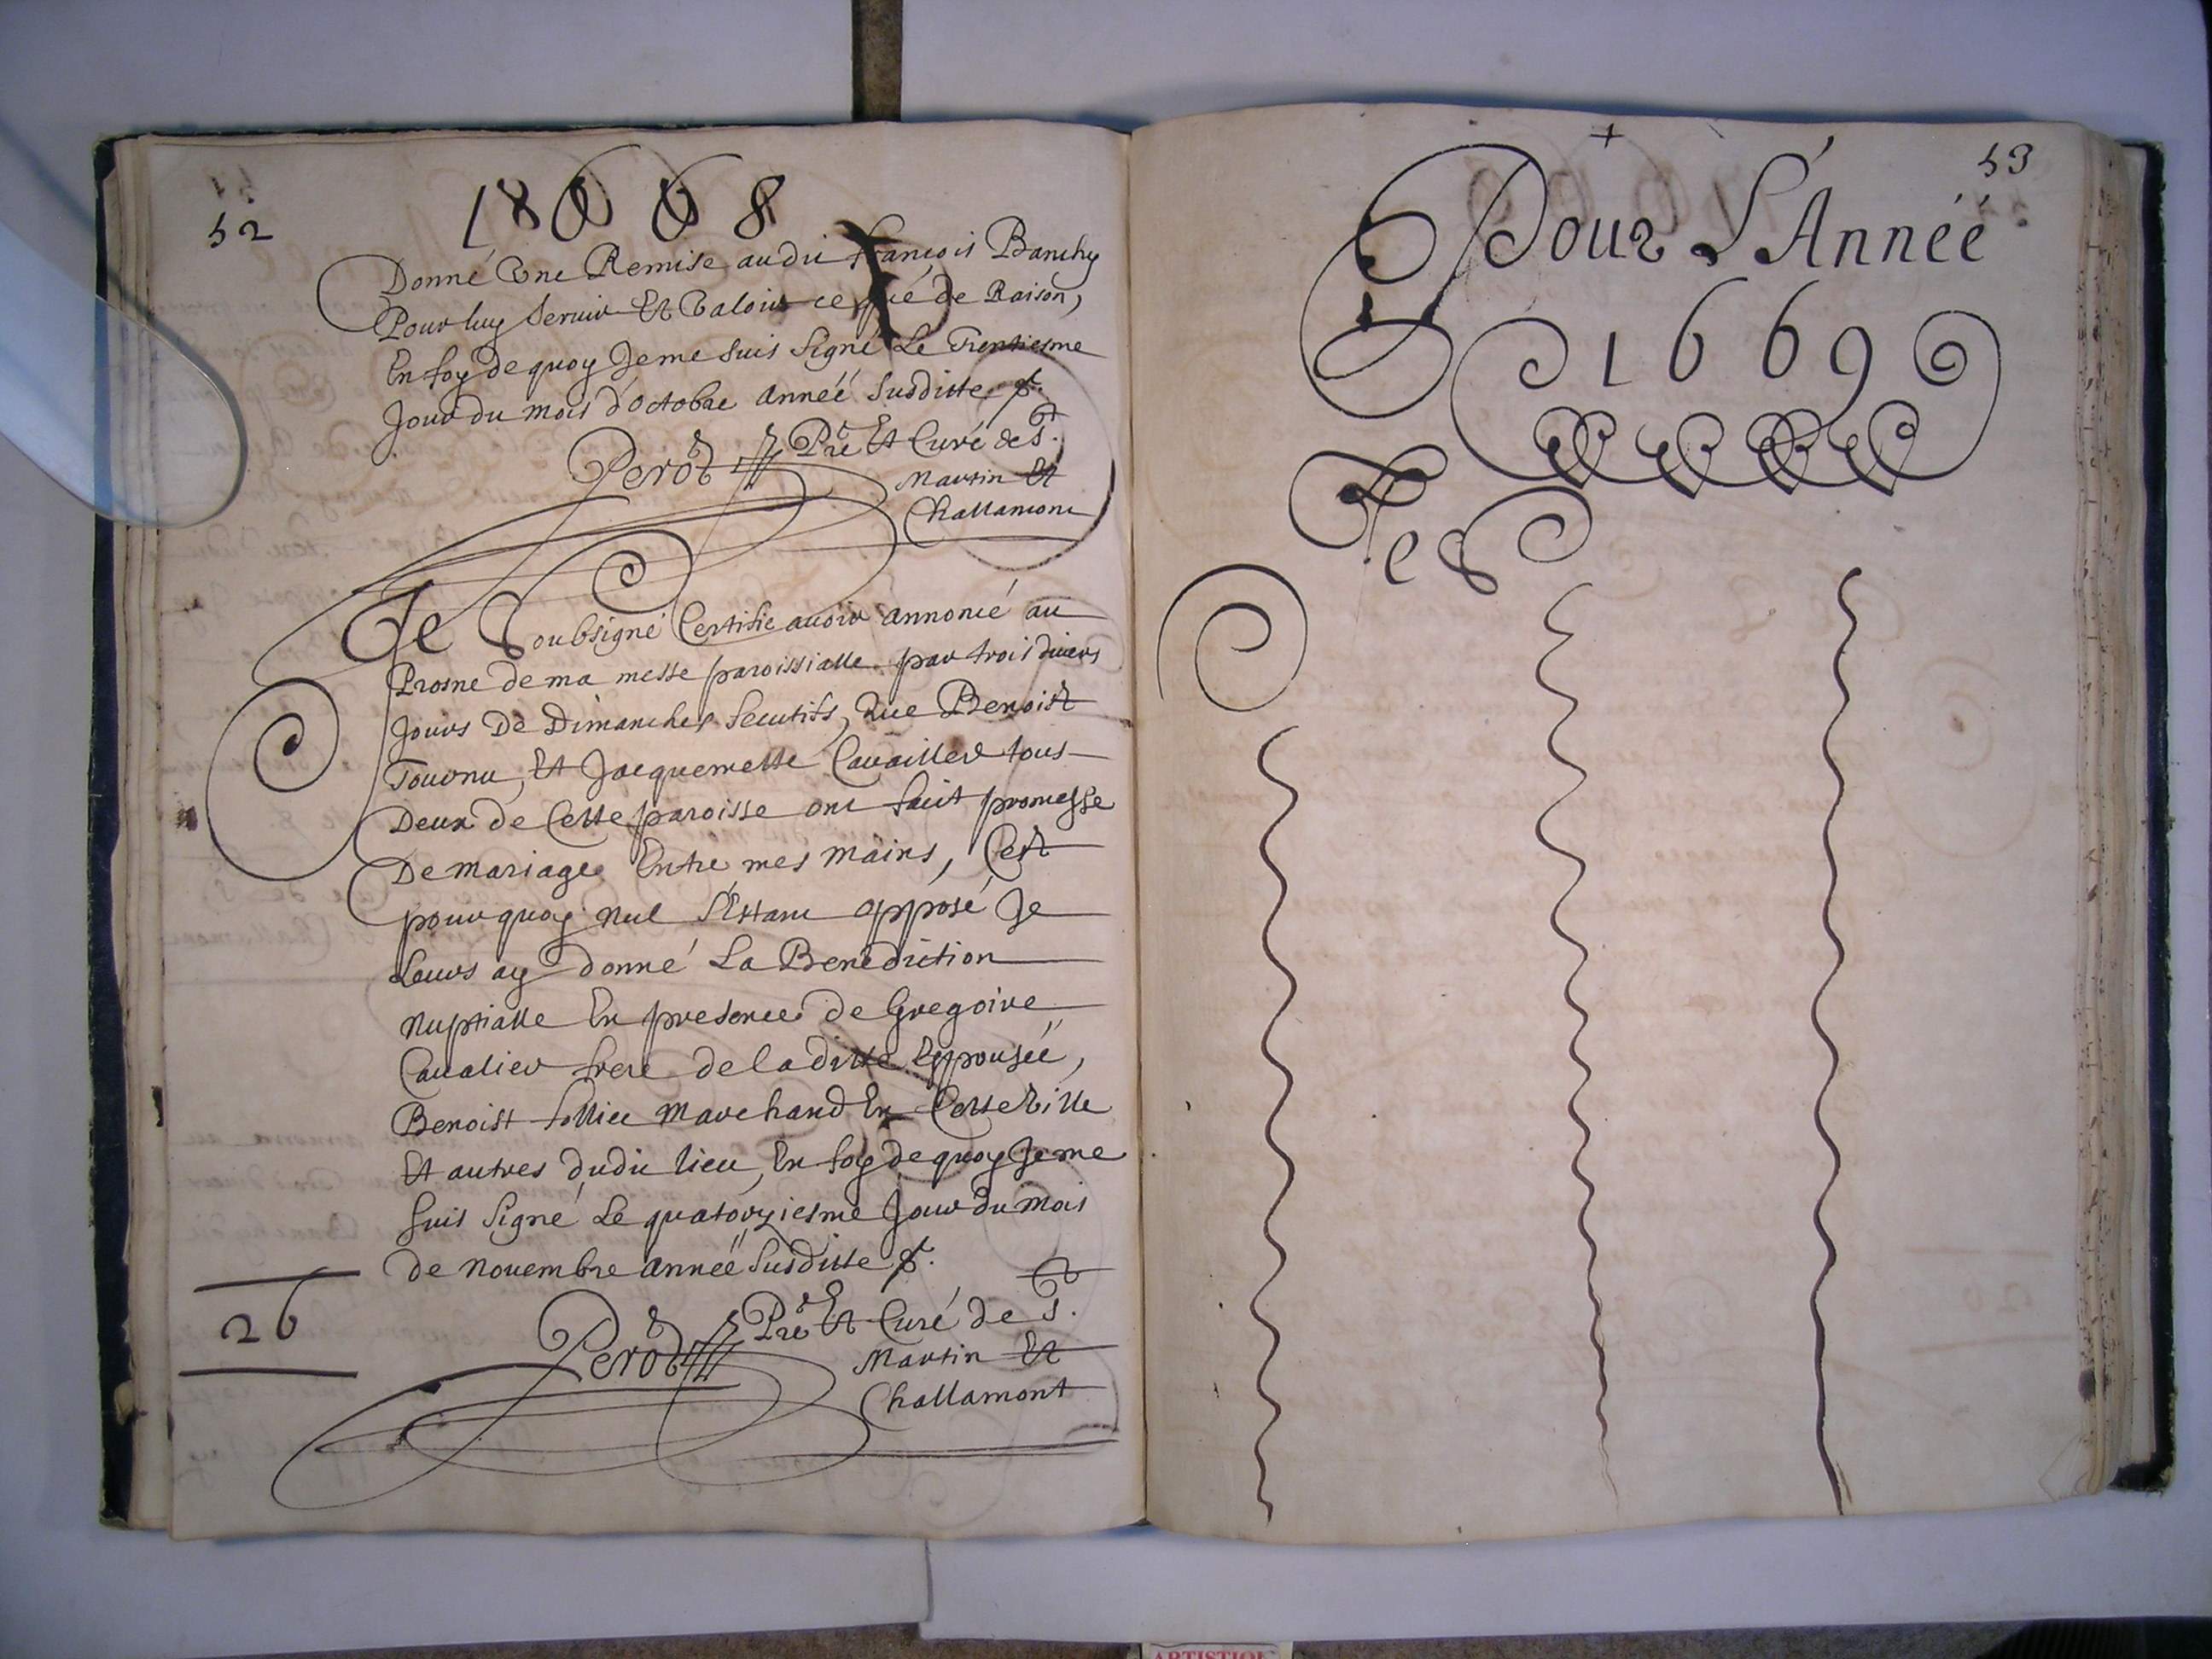 52
1668
Donné Une Remise audit françois Banchy
Pour luy Seruir Et Valoir ce que de Raison,
En foy de quoy Je me suis Signé Le Trentiesme
Jour du mois d'octobre Année Susditte
Perod Pre Et Curé de St.
Martin Et
Challamont
Je Soubsigné Certifie auoir annoncé au
Prosne de ma messe paroissialle par trois diuers
Jours De Dimanches Secutifs, Que Benoist
Tournu, Et Jacquemette Cauailler tous
Deux de Cette paroisse ont fait promesse
De mariage Entre mes mains, C'est
pourquoy nul s'Estant opposé Je
Leurs ay donné La Benediction
Nuptialle En presence de Gregoire
Caualier frere de la ditte Eppousée,
Benoist follice Marchand En Cette Ville
Et autres dudit lieu, En foy de quoy Je me
Suis Signé Le quatorziesme Jour du mois
de Nouembre Année Susditte
26
Perod Pre Et Curé de St.
Martin Et
Challamont
53
Pour L'Année
1669
ARTISTIQUE